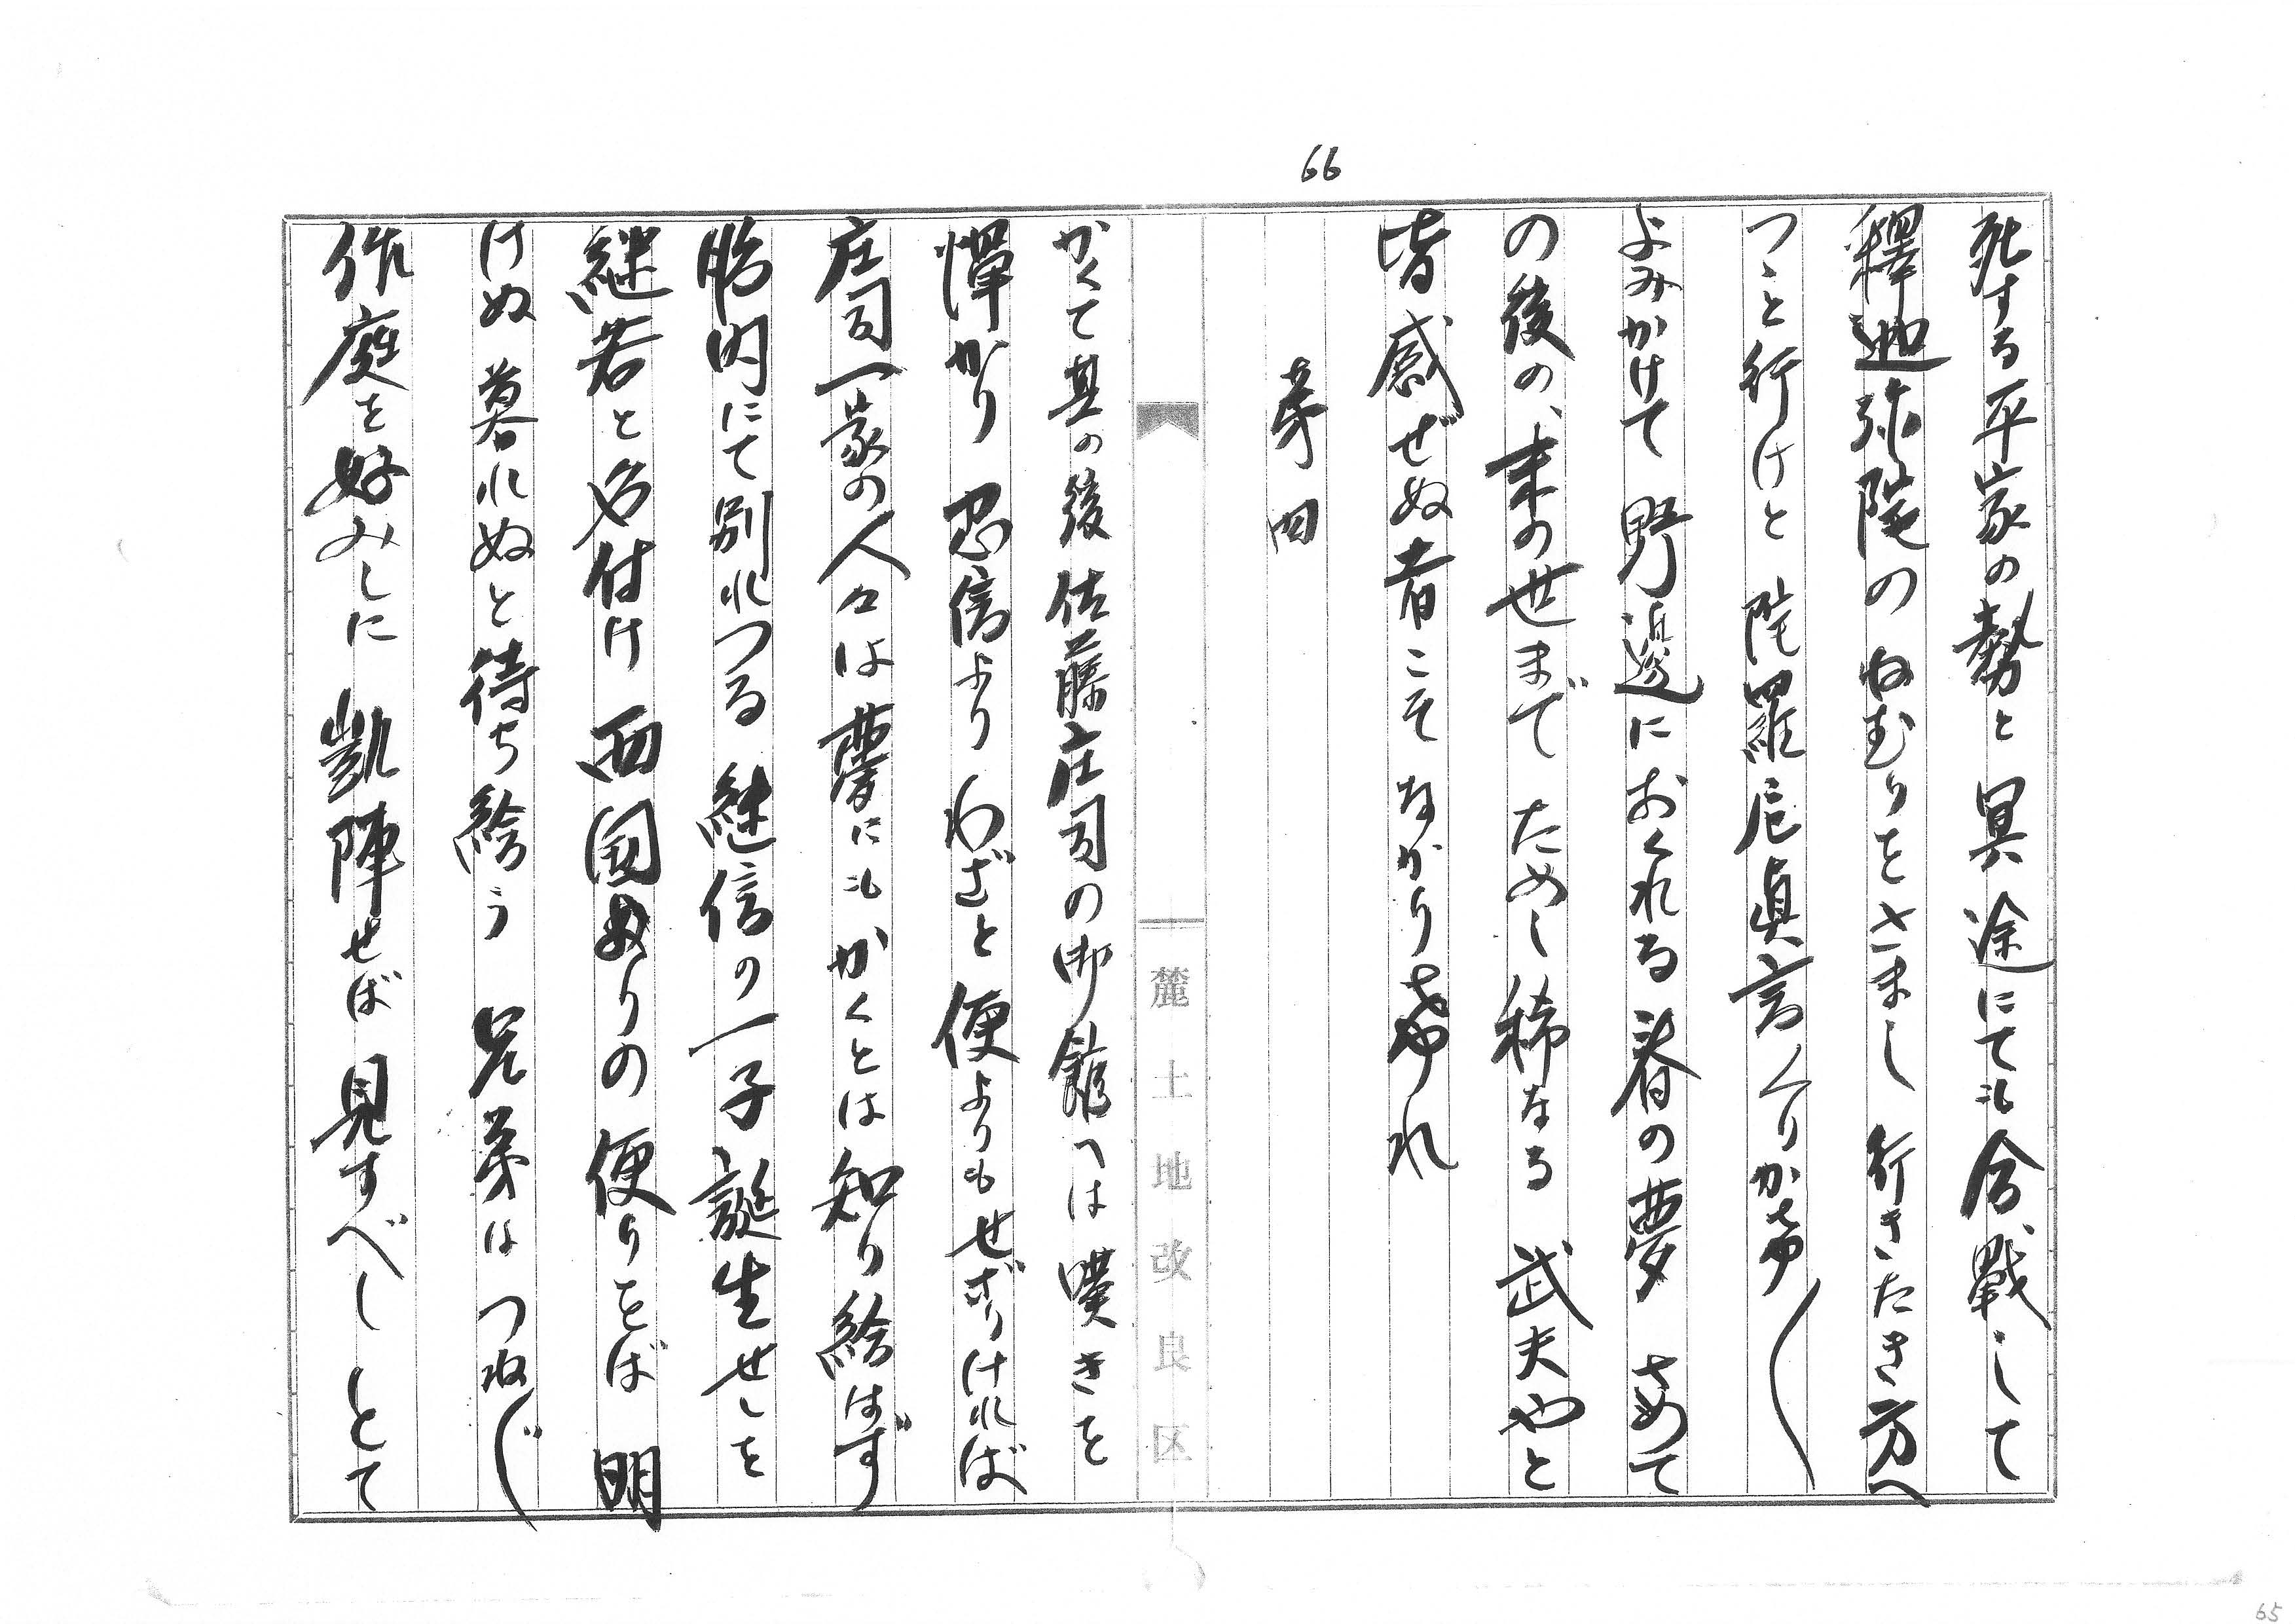 66
死する平家の勢と冥途にても合戰して
釋迦弥陀のねむりをさまし行きたき方へ
つゝと行けと陀羅尼眞言くりかさ
よみかけて野邊におくれる春の夢さめて
の後の、末の世までためし稀なる武夫やと
皆感ぜぬ者こそなかりけれ
第四
かくて其の後佐藤庄司の御館へは嘆きを
憚かり忍信よりわざと便よりもせざりければ
庄司一家の人々は夢にもかくとは知り給はず
胎内にて別れつる継信の一子誕生せしを
継若と名付け西国めりの便りをば明
けぬ暮れぬと待ち給う兄弟はつねに
作庭を好みしに凱陣せば見すべしとて
麓土地改良区
65